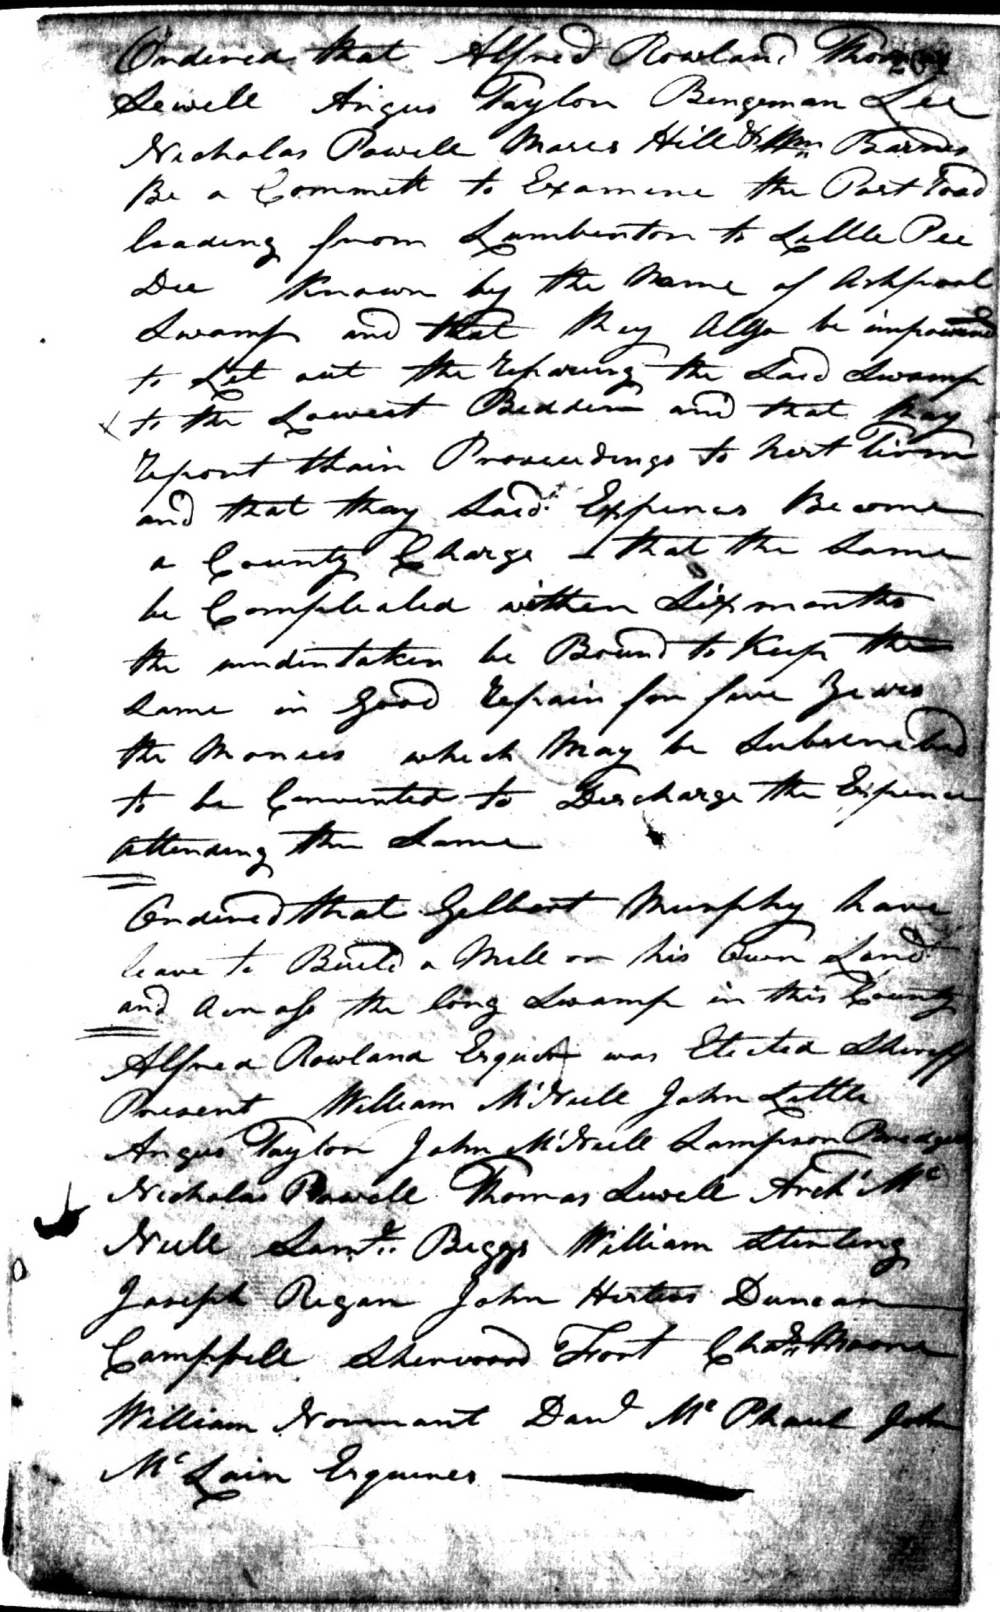 Ordered that Alfred Rowland Thomas
Sewell Angus Taylor Bengeman Lee
Nicholas Powell Moses Hill & Wm Barnes
Be a Committe to Examine the Post road
leading from Lumberton to Little Pee
Dee Known by the Name of Ashpoal
Swamp and that they Also be impowered
to Let out the repairing the Said Swamp
to the Lowest Bidder and that thay
report thair Proceedings to next Term
and that thay Said Expences Become
a County Charge - that the Same
be Compleated within Six months
the undertaker be Bound to Keep the
Same in Good repair for five Years
the Monies which May be Subscribed
to be Converted to Discharge the Expence
attending the Same
Ordered that Gelbert Murphy have
leave to Build a Mill on his Own Land
and Across the long Swamp in this County
Alfred Rowland Esquire was Elected Sheriff
Present William McNeill John Little
Angus Taylor John McNeill Sampson Bridges
Nicholas Powell Thomas Sewell Archd Mc
Neill Saml Biggs William Sterling
Joseph Regan John Hesters Duncan
Camppell Sherwood Fort Chas Moore
William Normant Danl McPhaul John
McLain Esquires